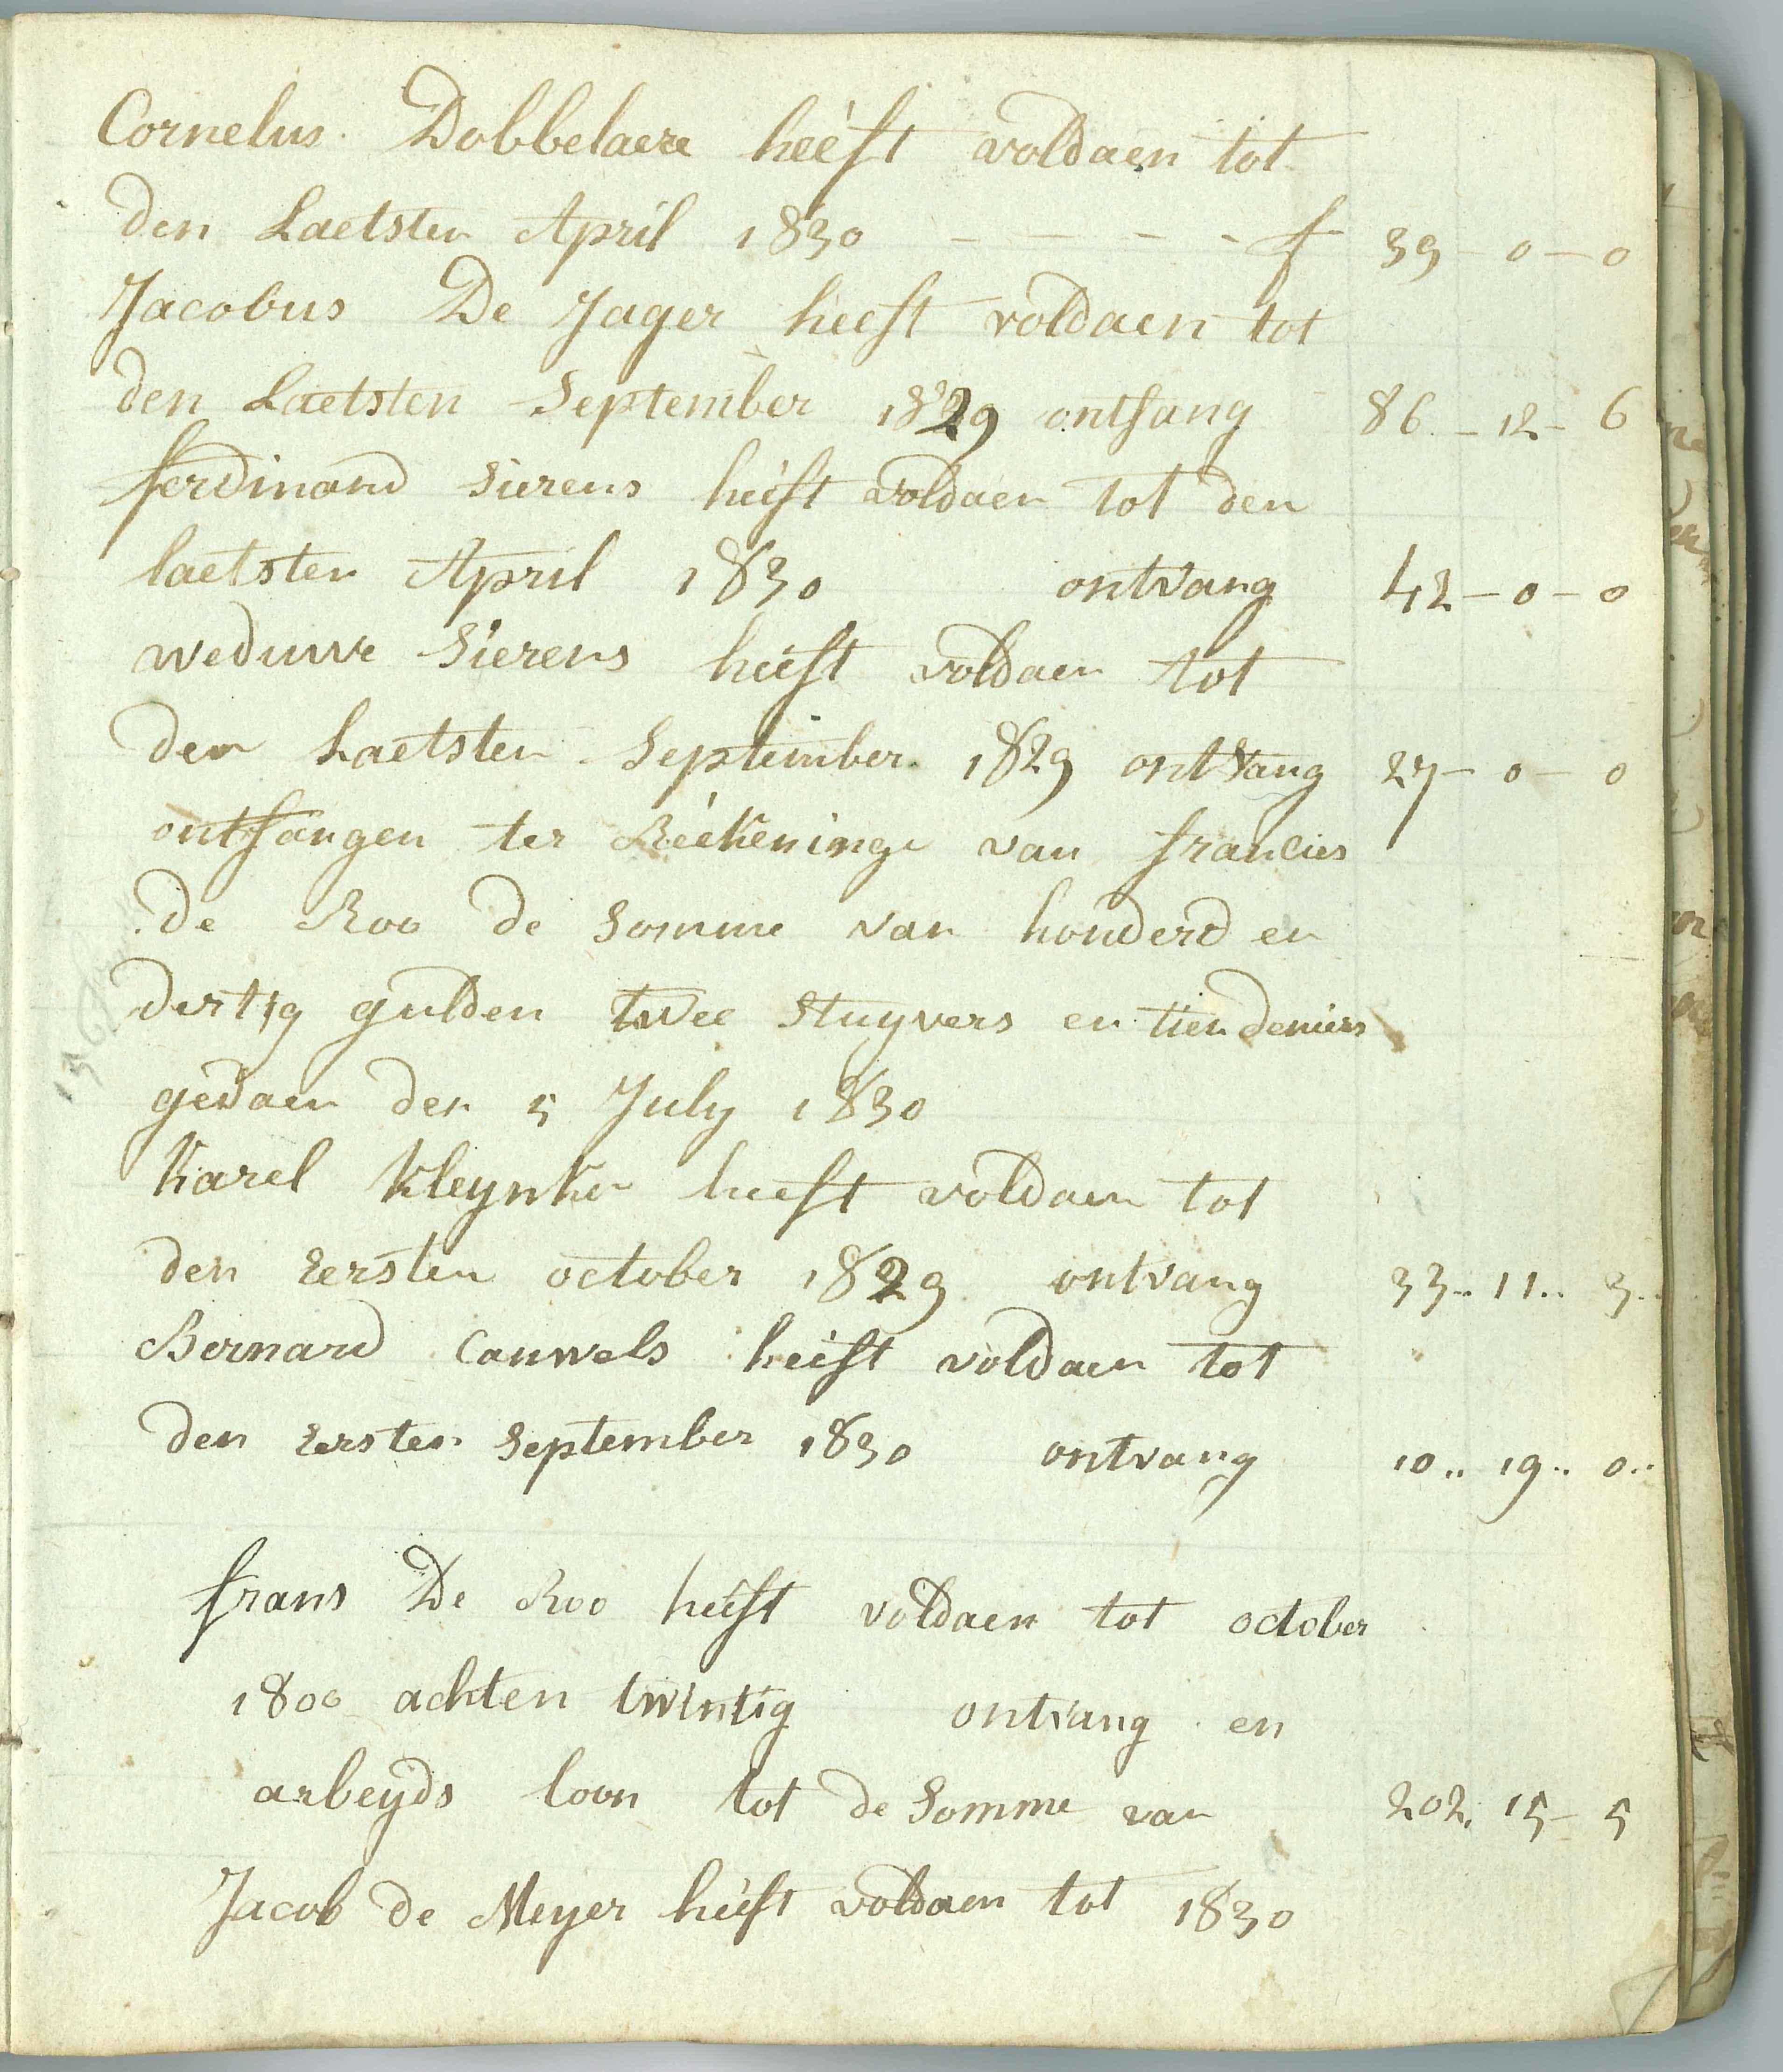 Cornelus Dobbelaere heeft voldaen tot
den Laetsten April 1830 - - - - f 39 - 0 - 0
Jacobus De Jager heeft voldaen tot
den Laetsten September 1829 ontfang 86 - 12 - 6
ferdinand Sierens heeft voldaen tot den
laetsten April 1830 ontvang 42 - 0 - 0
weduwe Sierens heeft voldaen tot
den Laetsten September 1829 ontvang 27 - 0 - 0
ontfangen ter Reekeninge van francies
de Roo de Somme van honderd en
dertig gulden twee Stuyvers en tien deniers
gedaen den 5 July 1830
Karel Kleynke heeft voldaen tot
den Eersten october 1829 ontvang 33 .. 11 .. 3 ..
Bernard Cauwels heeft voldaen tot
den Eersten September 1830 ontvang 10 .. 19 .. 0 ..
frans De Roo heeft voldaen tot october
1800 achten twintig ontvang en
arbeyds loon tot de Somme van 202. 15 - 5
Jacob de Meyer heeft voldaen tot 1830